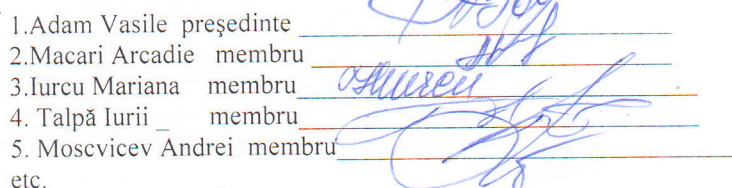 1.Adam Vasile președinte
2.Macari Arcadie membru
3.Iurcu Mariana membru
4. Talpă Iurii _ membru
5. Moscvicev Andrei membru
etc.